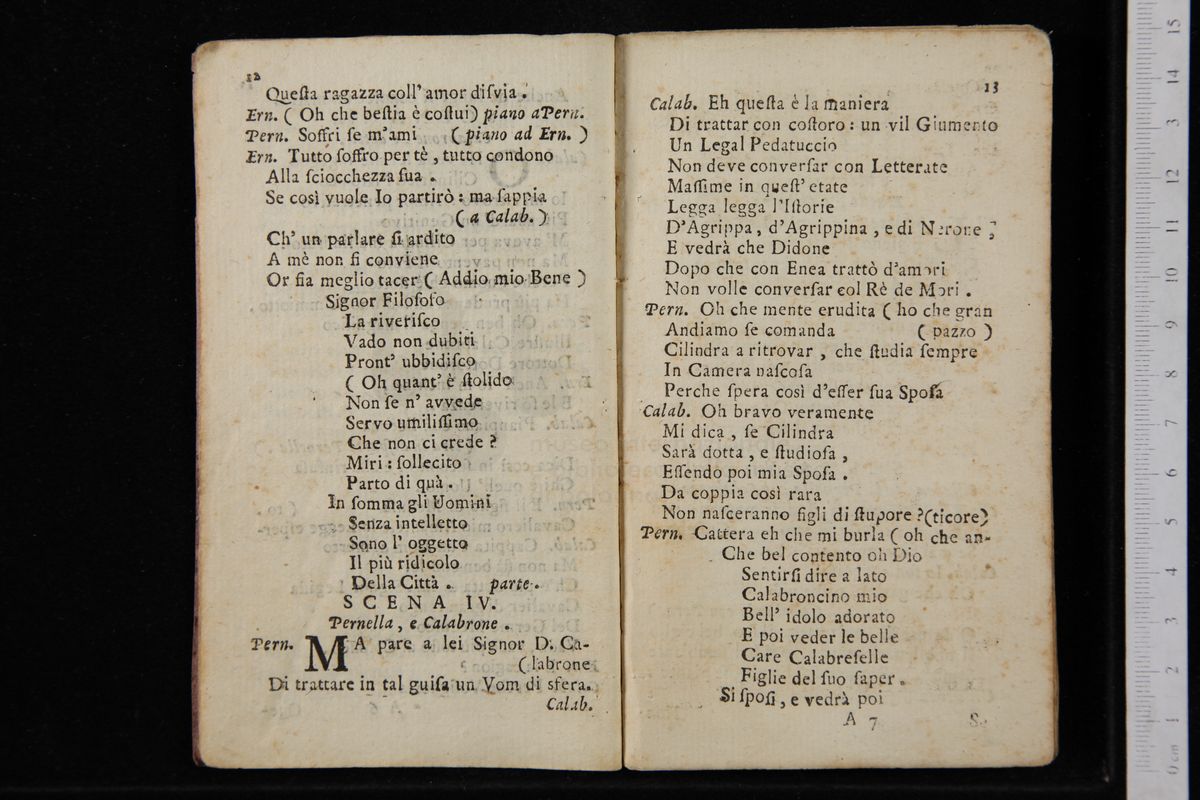 12
Queſta ragazza coll' amor diſvia .
Ern. ( Oh che beſtia è coſtui) piano aPern.
Pern. Soffri ſe m'ami ( piano ad Ern. )
Ern. Tutto ſoffro per tè , tutto condono
Alla ſciocchezza ſua .
Se così vuole Io partirò : ma ſappia
( a Calab. )
Ch' un parlare ſi ardito
A mè non ſi conviene
Or ſia meglio tacer ( Addio mio Bene )
Signor Filoſofo
La riveriſco
Vado non dubiti
Pront' ubbidiſco
( Oh quant' è ſtolido
Non ſe n' avvede
Servo umiliſſimo
Che non ci crede ?
Miri : ſollecito
Parto di quà .
In ſomma gli Uomini
Senza intelletto
Sono l' oggetto
Il più ridicolo
Della Città . parte .
SCENA IV.
Pernella , e Calabrone .
Pern. MA pare a lei Signor D. Ca-
( labrone
Di trattare in tal guiſa un Vom di sfera.
Calab.
13
Calab. Eh queſta è la maniera
Di trattar con coſtoro : un vil Giumento
Un Legal Pedatuccio
Non deve converſar con Letterate
Maſſime in queſt' etate
Legga legga l'Iſtorie
D'Agrippa , d'Agrippina , e di Nerone ;
E vedrà che Didone
Dopo che con Enea trattò d'amori
Non volle converſar col Rè de Mori .
Pern. Oh che mente erudita ( ho che gran
Andiamo ſe comanda ( pazzo )
Cilindra a ritrovar , che ſtudia ſempre
In Camera naſcoſa
Perche ſpera così d'eſſer ſua Spoſa
Calab. Oh bravo veramente
Mi dica , ſe Cilindra
Sarà dotta , e ſtudioſa ,
Eſſendo poi mia Spoſa .
Da coppia così rara
Non naſceranno figli di ſtupore ?(ticore)
Pern. Cattera eh che mi burla ( oh che an-
Che bel contento oh Dio
Sentirſi dire a lato
Calabroncino mio
Bell' idolo adorato
E poi veder le belle
Care Calabreſelle
Figlie del ſuo ſaper .
Si ſpoſi , e vedrà poi
A 7 S.